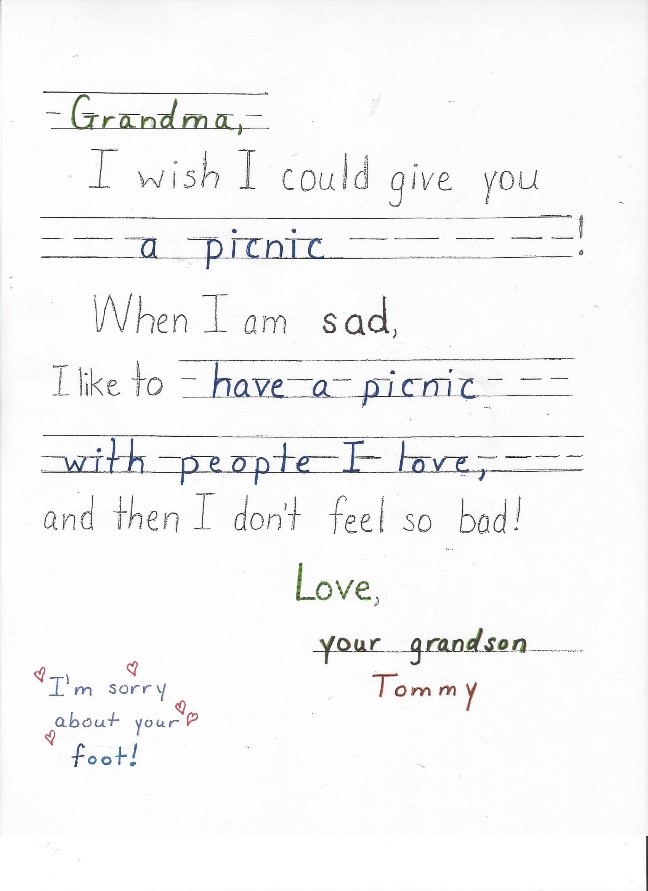 Grandma,
I wish I could give you
a picnic!
When I am sad,
I like to have a picnic
with people I love,
and then I don't feel so bad!
Love,
your grandson
Tommy
I'm sorry
about your
foot!